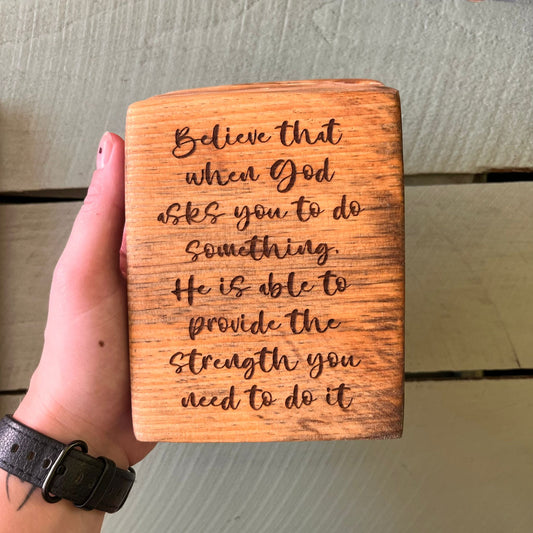 Believe that
when God
asks you to do
something.
He is able to
provide the
strength you
need to do it